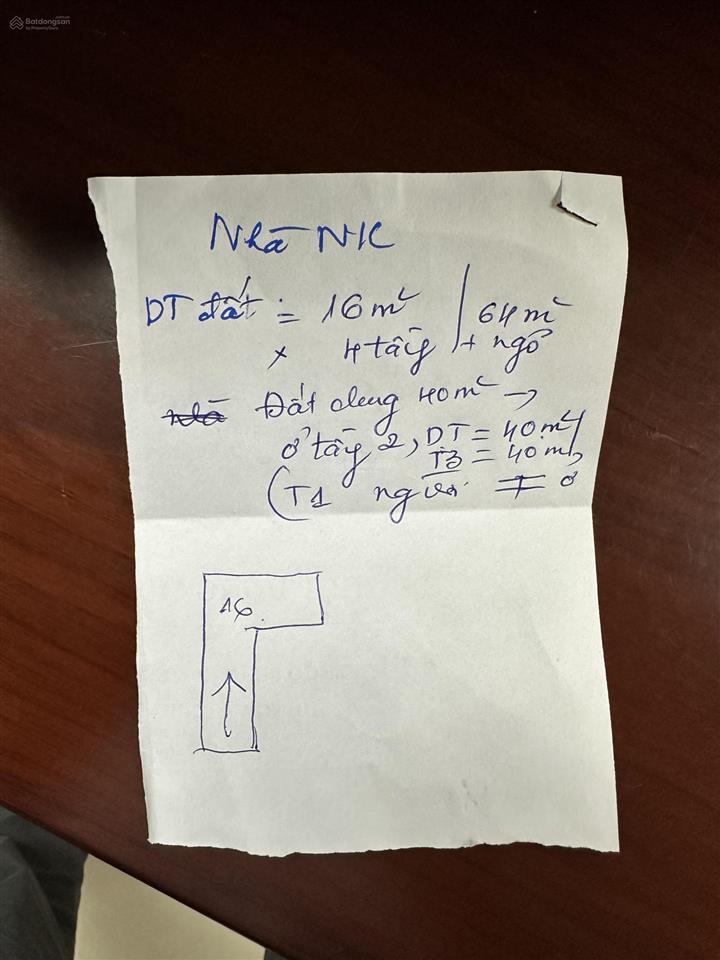 Batdongsan
by PropertyGuru
Nhà NK
DT đất = 16m² | 64m²
x 4 tầng + ngõ
nhà Đất chung 40m² →
ở tầng 2, DT = 40m²
T3 = 40m²
(T1 người ≠ ở
16